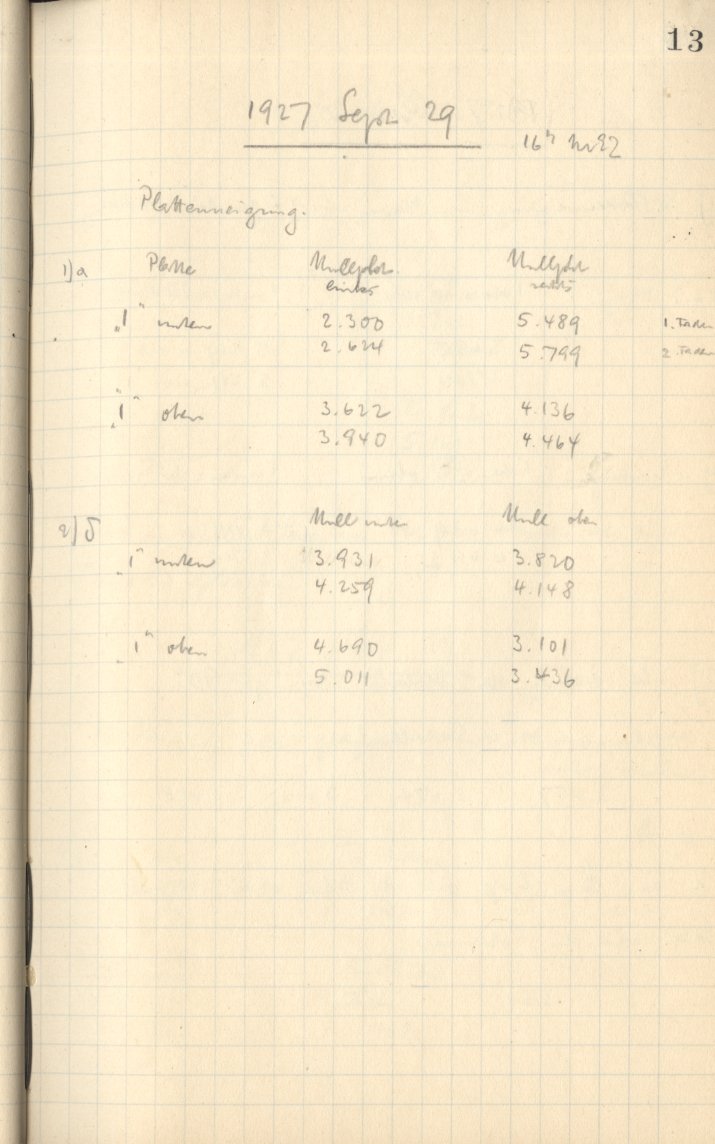 13
1927 Sept 29
16h MEZ
Plattenneigung.
1) a Platte Nullpkt. Nullpkt
links rechts
"1" unten 2.300 5.489 1. Faden
2.624 5.799 2. Faden
"1" oben 3.622 4.136
3.940 4.464
2) δ Null unten Null oben
"1" unten 3.931 3.820
4.259 4.148
"1" oben 4.690 3.101
5.011 3.436